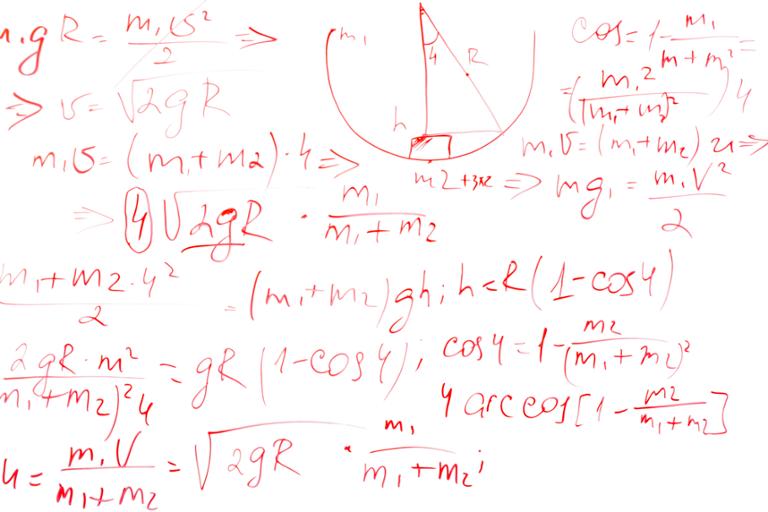 m₁gR = m₁υ²/2 ⇒
⇒ υ = √2gR
m₁υ = (m₁+m₂)·4 ⇒
⇒ 4 √2gR · m₁/(m₁+m₂)
m₁+m₂·4²/2 = (m₁+m₂)gh; h<R(1-cos4)
2gR·m²/(m₁+m₂)²4 = gR(1-cos4); cos4 = 1-m₂/(m₁+m₂)²
4 arccos[1-m₂/(m₁+m₂)]
u = m₁V/(m₁+m₂) = √2gR · m₁/(m₁+m₂);
m₁
4
R
h
m2+3m2
cos = 1-m₁/(m+m²) =
= (m₁2/(m₁+m₂)²) 4
m₁υ = (m₁+m₂) u ⇒
⇒ mg₁ = m₁V²/2